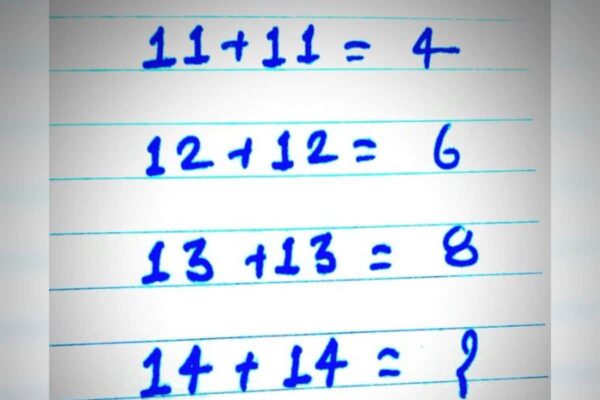 11+11= 4
12+12= 6
13+13= 8
14+14= ?